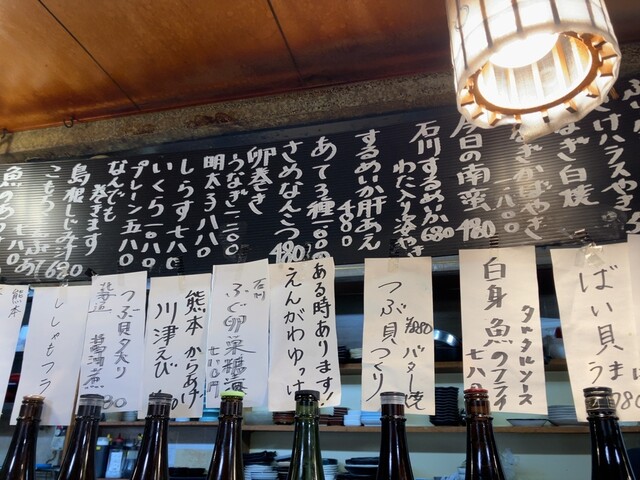 さけハラスやき
うなぎ白焼
うなぎかばやき
一八〇〇
今日の南蛮 480
石川するめいか
わた入り姿やき 680
するめいか肝あえ
480
あて3種 一〇〇〇
さめなんこつ 480
卵巻き
うなぎ 一二〇〇
明太子 八八〇
しらす 七八〇
いくら 一〇八〇
プレーン 五八〇
なんでも
巻きます
島根しじみ汁 620
こもち
ばい貝
うま
780
タルタルソース
白身魚のフライ
七八〇
つぶ貝
バター焼
つくり
ある時あります!
えんがわゆっけ
石川
ふぐ卵巣糠漬
七八〇円
熊本
からあげ
川津えび
つぶ貝夕張り
北海道
ししゃもフライ
熊本